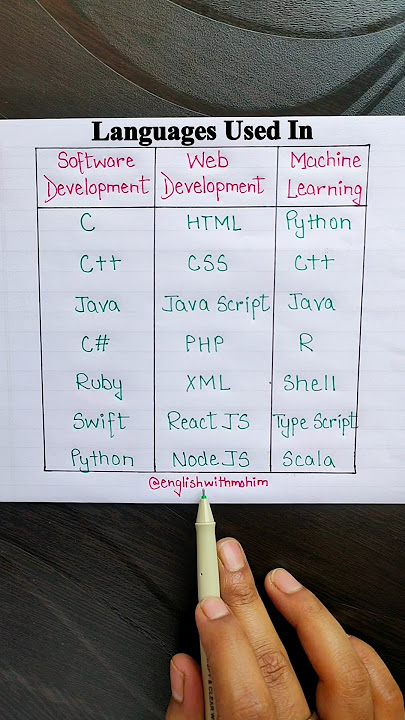 Languages Used In
Software Development Web Development Machine Learning
C HTML Python
C++ CSS C++
Java Java Script Java
C# PHP R
Ruby XML Shell
Swift React JS Type Script
Python Node JS Scala
@englishwithmohim